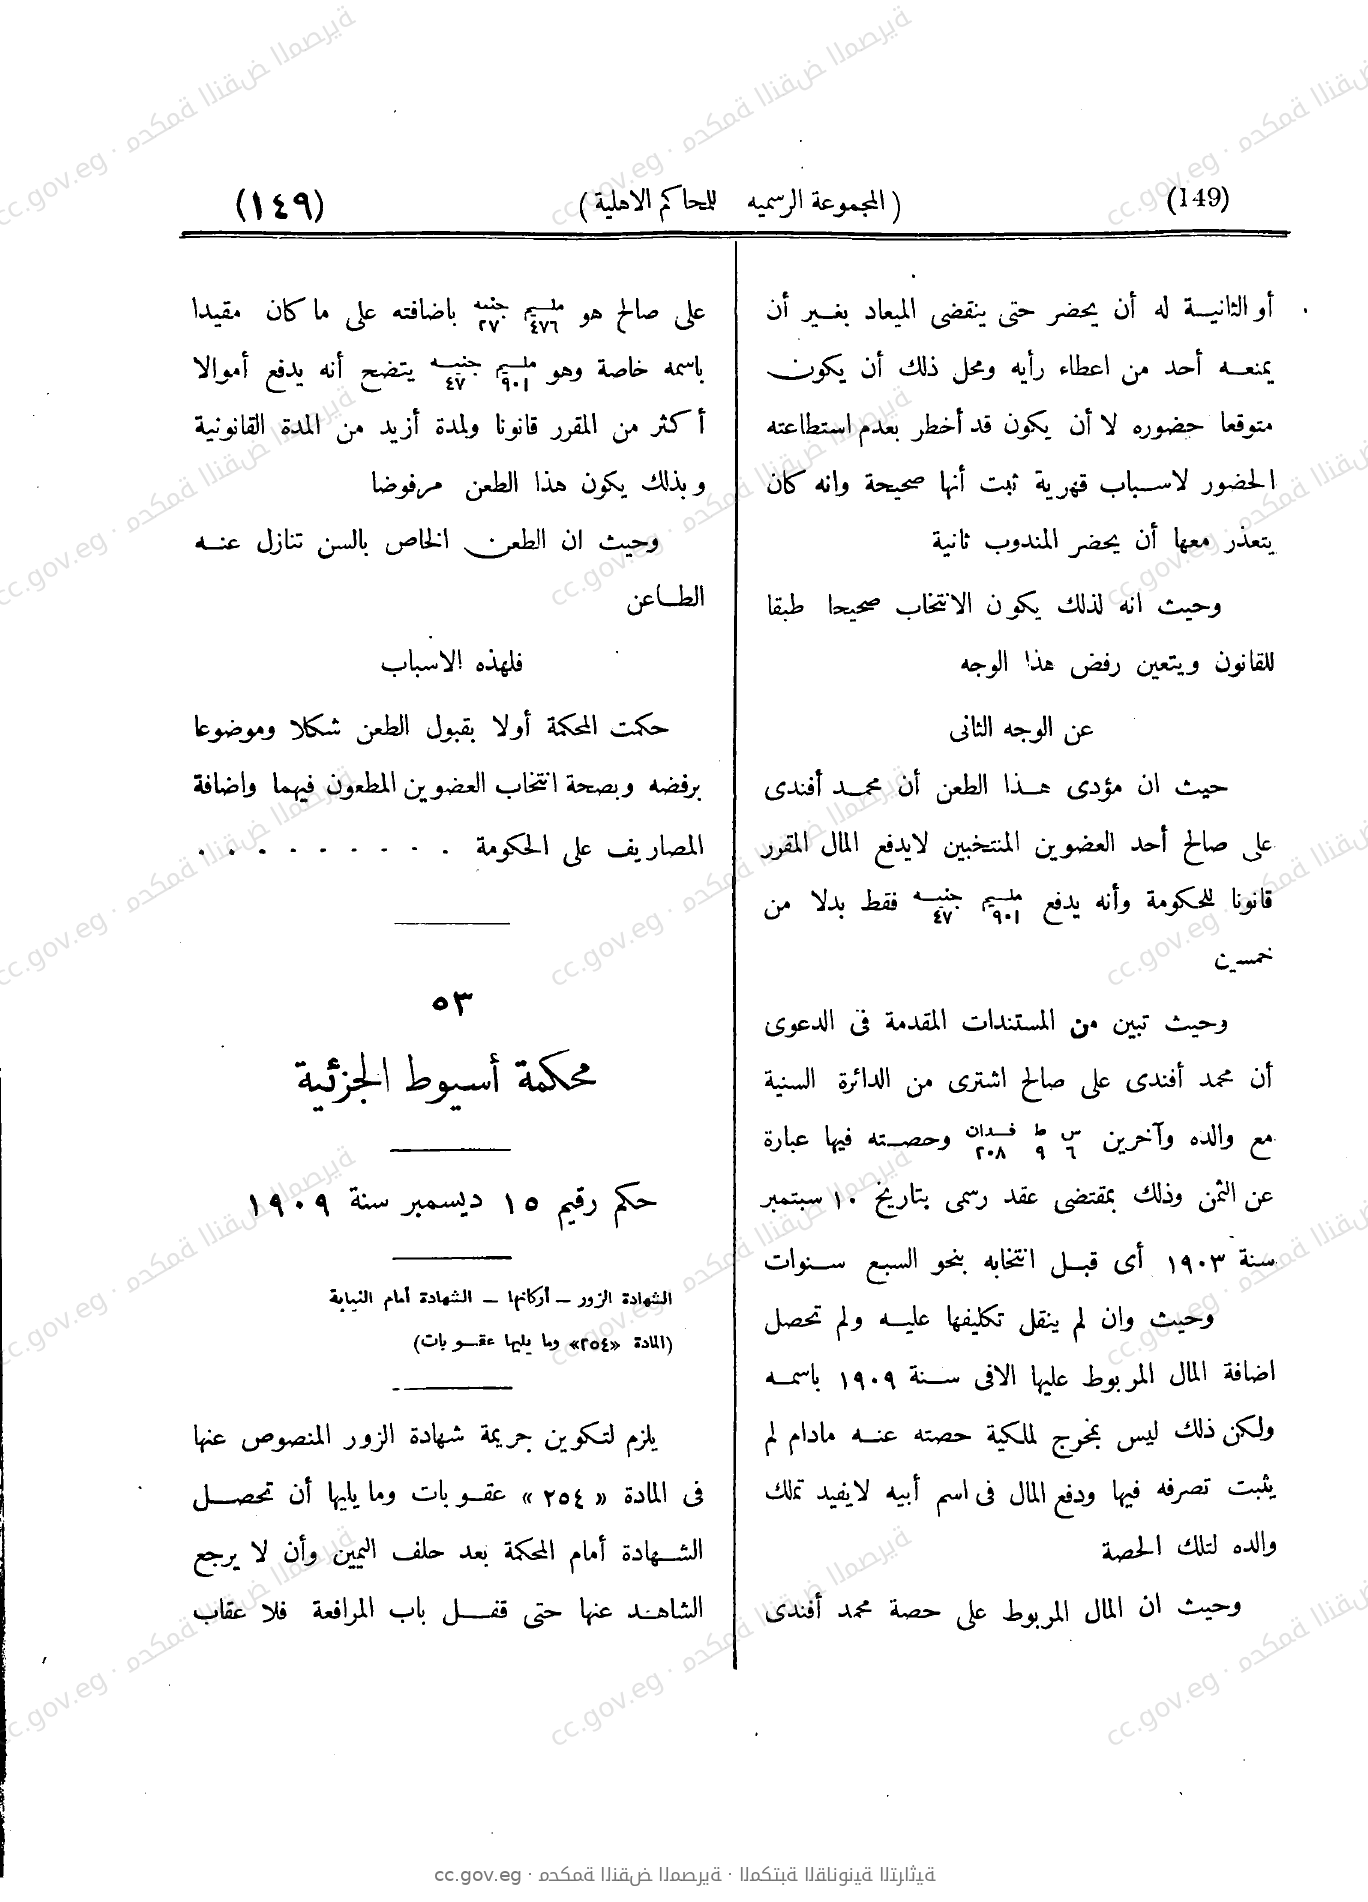 (149) (المجموعة الرسميه للمحاكم الاهلية) (١٤٩)
أو الثانية له أن يحضر حتى ينقضى الميعاد بغير أن
يمنعه أحد من اعطاء رأيه ومحل ذلك أن يكون
متوقعا حضوره لا أن يكون قد أخطر بعدم استطاعته
الحضور لاسباب قهرية ثبت أنها صحيحة وانه كان
يتعذر معها أن يحضر المندوب ثانية
وحيث انه لذلك يكون الانتخاب صحيحا طبقا
للقانون ويتعين رفض هذا الوجه
عن الوجه الثانى
حيث ان مؤدى هذا الطعن أن محمد أفندى
على صالح أحد العضوين المنتخبين لايدفع المال المقرر
قانونا للحكومة وأنه يدفع مليم ٩٠١ جنيه ٤٧ فقط بدلا من
خمسين
وحيث تبين من المستندات المقدمة فى الدعوى
أن محمد أفندى على صالح اشترى من الدائرة السنية
مع والده وآخرين س ٦ ط ٩ فدان ٢٠٨ وحصته فيها عبارة
عن الثمن وذلك بمقتضى عقد رسمى بتاريخ ١٠ سبتمبر
سنة ١٩٠٣ أى قبل انتخابه بنحو السبع سنوات
وحيث وان لم ينقل تكليفها عليه ولم تحصل
اضافة المال المربوط عليها الافى سنة ١٩٠٩ باسمه
ولكن ذلك ليس بمخرج لملكية حصته عنه مادام لم
يثبت تصرفه فيها ودفع المال فى اسم أبيه لايفيد تملك
والده لتلك الحصة
وحيث ان المال المربوط على حصة محمد أفندى
على صالح هو مليم ٤٧٦ جنيه ٢٧ باضافته على ما كان مقيدا
باسمه خاصة وهو مليم ٩٠١ جنيه ٤٧ يتضح أنه يدفع أموالا
أكثر من المقرر قانونا ولمدة أزيد من المدة القانونية
وبذلك يكون هذا الطعن مرفوضا
وحيث ان الطعن الخاص بالسن تنازل عنه
الطاعن
فلهذه الاسباب
حكمت المحكمة أولا بقبول الطعن شكلا وموضوعا
برفضه وبصحة انتخاب العضوين المطعون فيهما واضافة
المصاريف على الحكومة . . . . . . . . .
٥٣
محكمة أسيوط الجزئية
حكم رقيم ١٥ ديسمبر سنة ١٩٠٩
الشهادة الزور – أركانها – الشهادة أمام النيابة
(المادة «٢٥٤» وما يليها عقوبات)
يلزم لتكوين جريمة شهادة الزور المنصوص عنها
فى المادة «٢٥٤» عقوبات وما يليها أن تحصل
الشهادة أمام المحكمة بعد حلف اليمين وأن لا يرجع
الشاهد عنها حتى قفل باب المرافعة فلا عقاب
cc.gov.eg · محكمة النقض المصرية · المكتبة القانونية التراثية